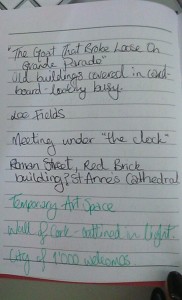 "The Goat That Broke Loose On
Grande Parade"
old buildings covered in card-
board - looking busy.
Lee Fields
Meeting under "the clock"
Roman Street, Red Brick
building? St Annes Cathedral
Temporary Art Space
Wall of Cork - outlined in light.
City of 1'000 welcomes.